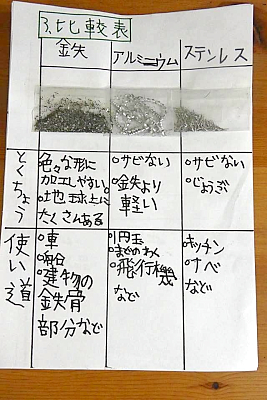 3.比較表
金失 アルミニウム ステンレス
とくちょう
色々な形に
加工しやすい。
○地球上に
たくさんある
○サビない
○鉄より
軽い
○サビない
○じょうぶ
使い道
○車
○船
○建物の
鉄骨
部分など
○1円玉
○まどのわく
○飛行機
など
○キッチン
○ナベ
など